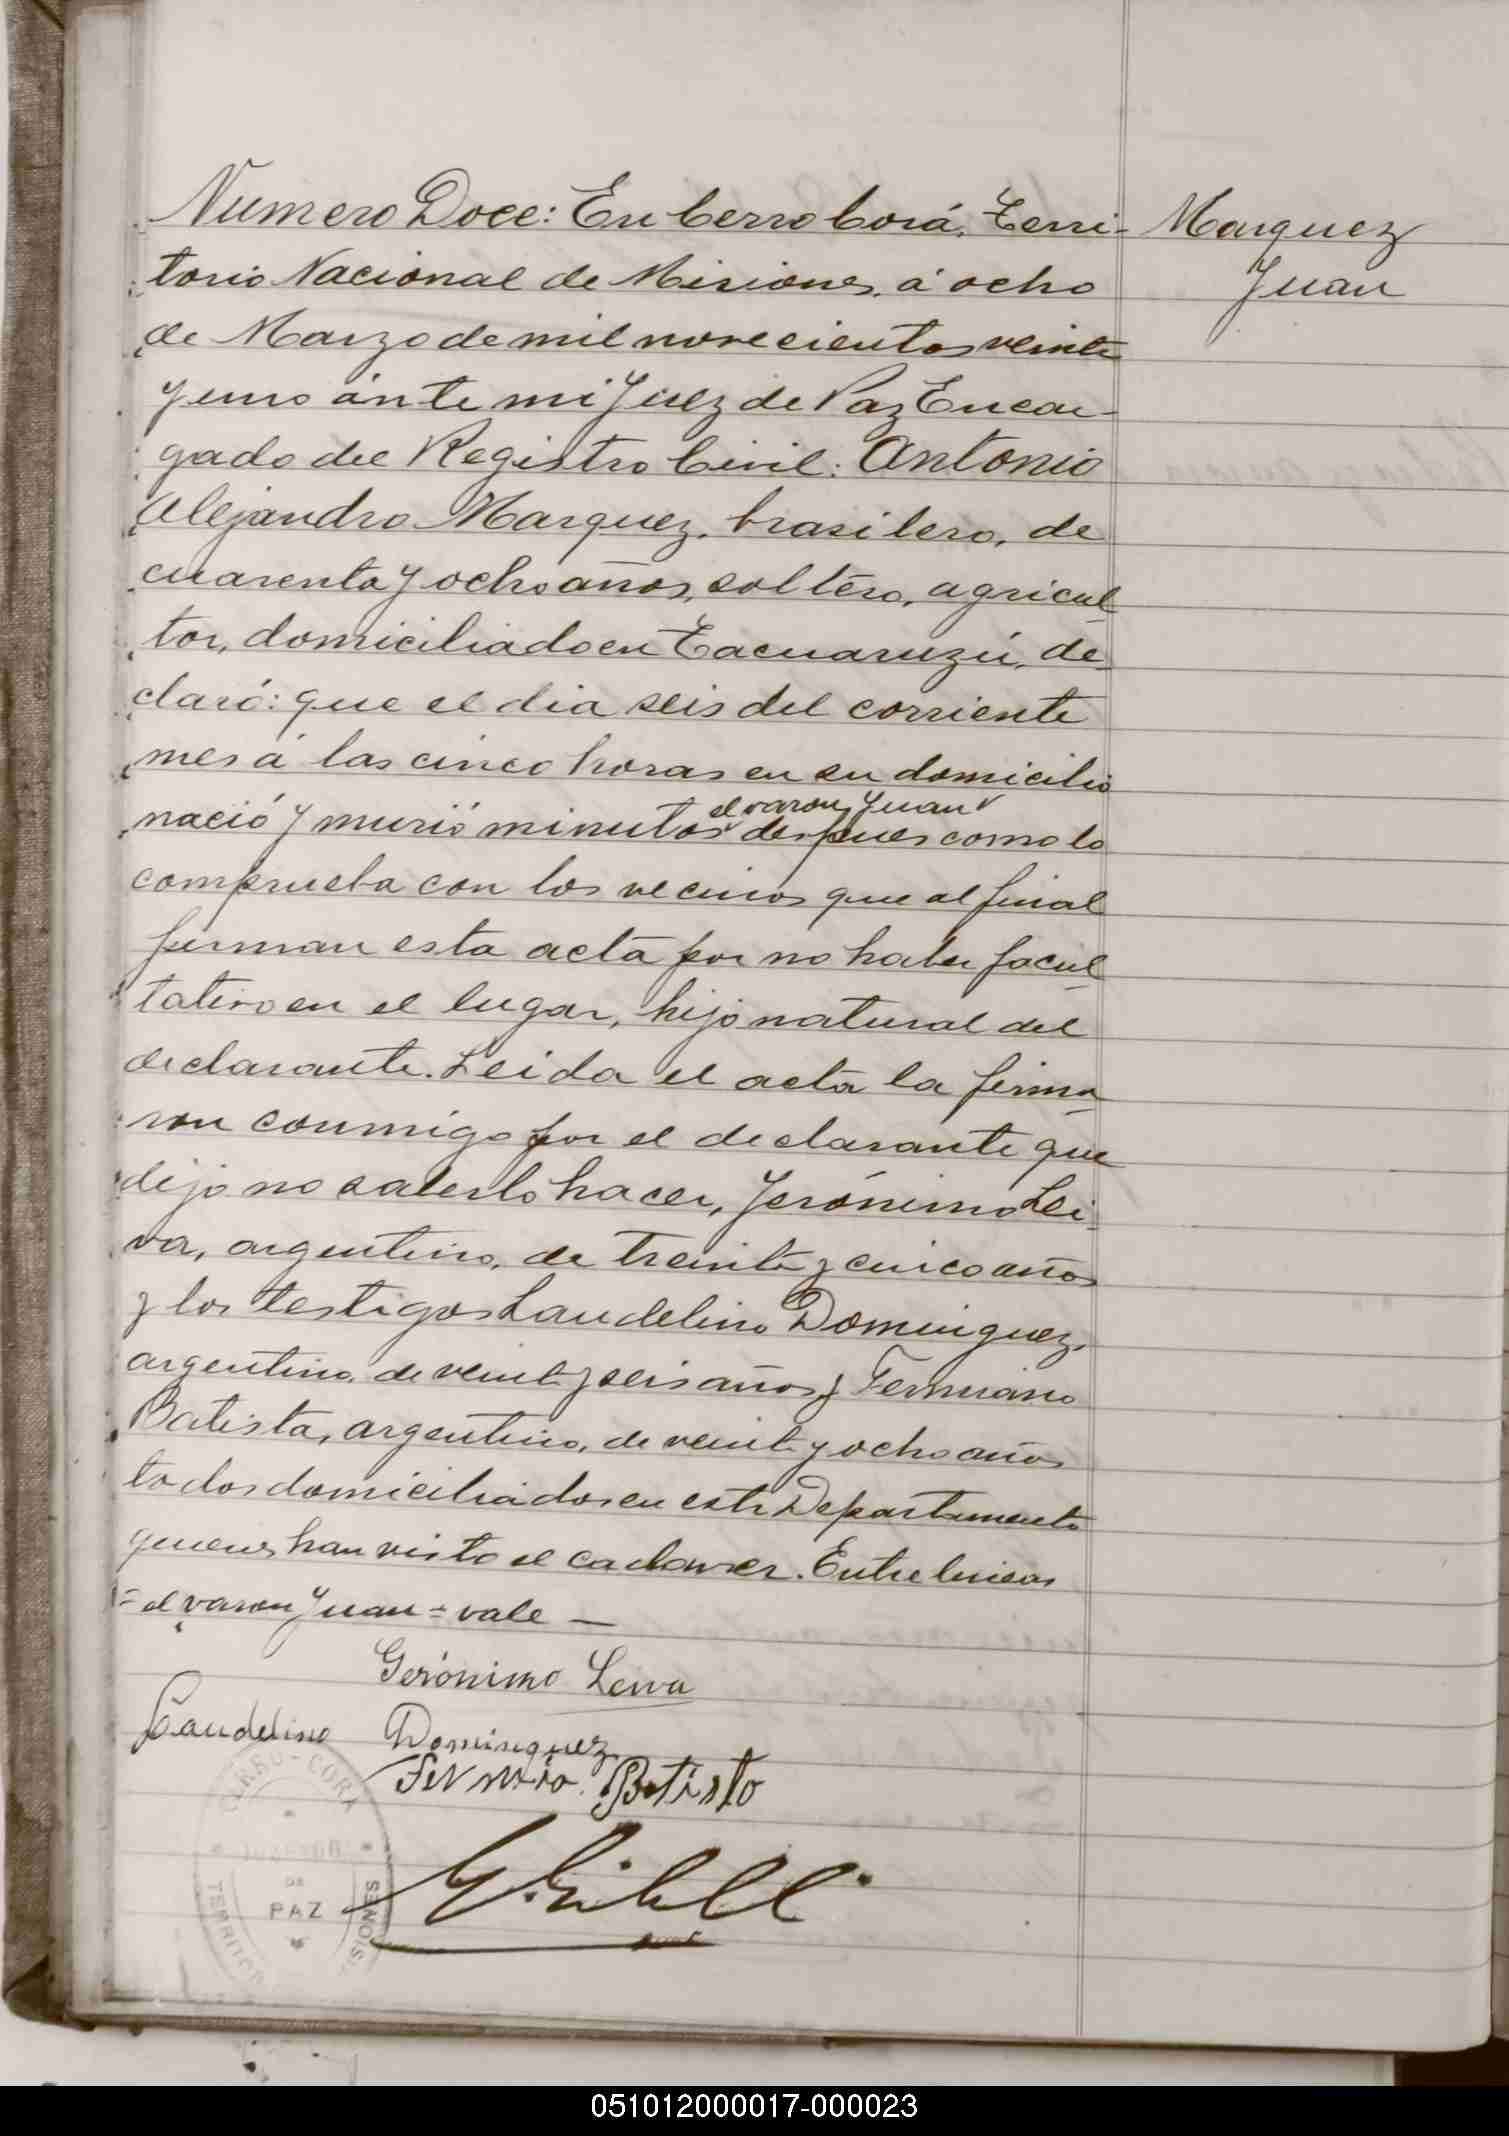 Numero Doce: En Cerro Corá, Terri-
torio Nacional de Misiones, á ocho
de Marzo de mil novecientos veinte
y uno ánte mi Juez de Paz Encar-
gado del Registro Civil: Antonio
Alejandro Marquez, brasilero, de
cuarenta y ocho años, soltero, agricul-
tor, domiciliado en Tacuaruzú, de-
claró: que el dia seis del corriente
mes á las cinco horas en su domicilio
el varon Juan
nació y murió minutos despues como lo
comprueba con los vecinos que al final
firman esta acta por no haber facul-
tativo en el lugar, hijo natural del
declarante. Leida el acta la firma-
ron conmigo por el declarante que
dijo no saberlo hacer, Jerónimo Lei-
va, argentino, de treinta y cinco años
y los testigos Laudelino Dominguez,
argentino, de veinte y seis años y Fermiano
Batista, argentino, de veinte y ocho años
todos domiciliados en este Departamento
quienes han visto el cadaver. Entre lineas
= el varon Juan = vale —
Gerónimo Leiva
Laudelino Dominguez
Batisto
CERRO-CORA
JUZGADO
DE
PAZ
TERRITORIO
MISIONES
Marquez
Juan
051012000017-000023